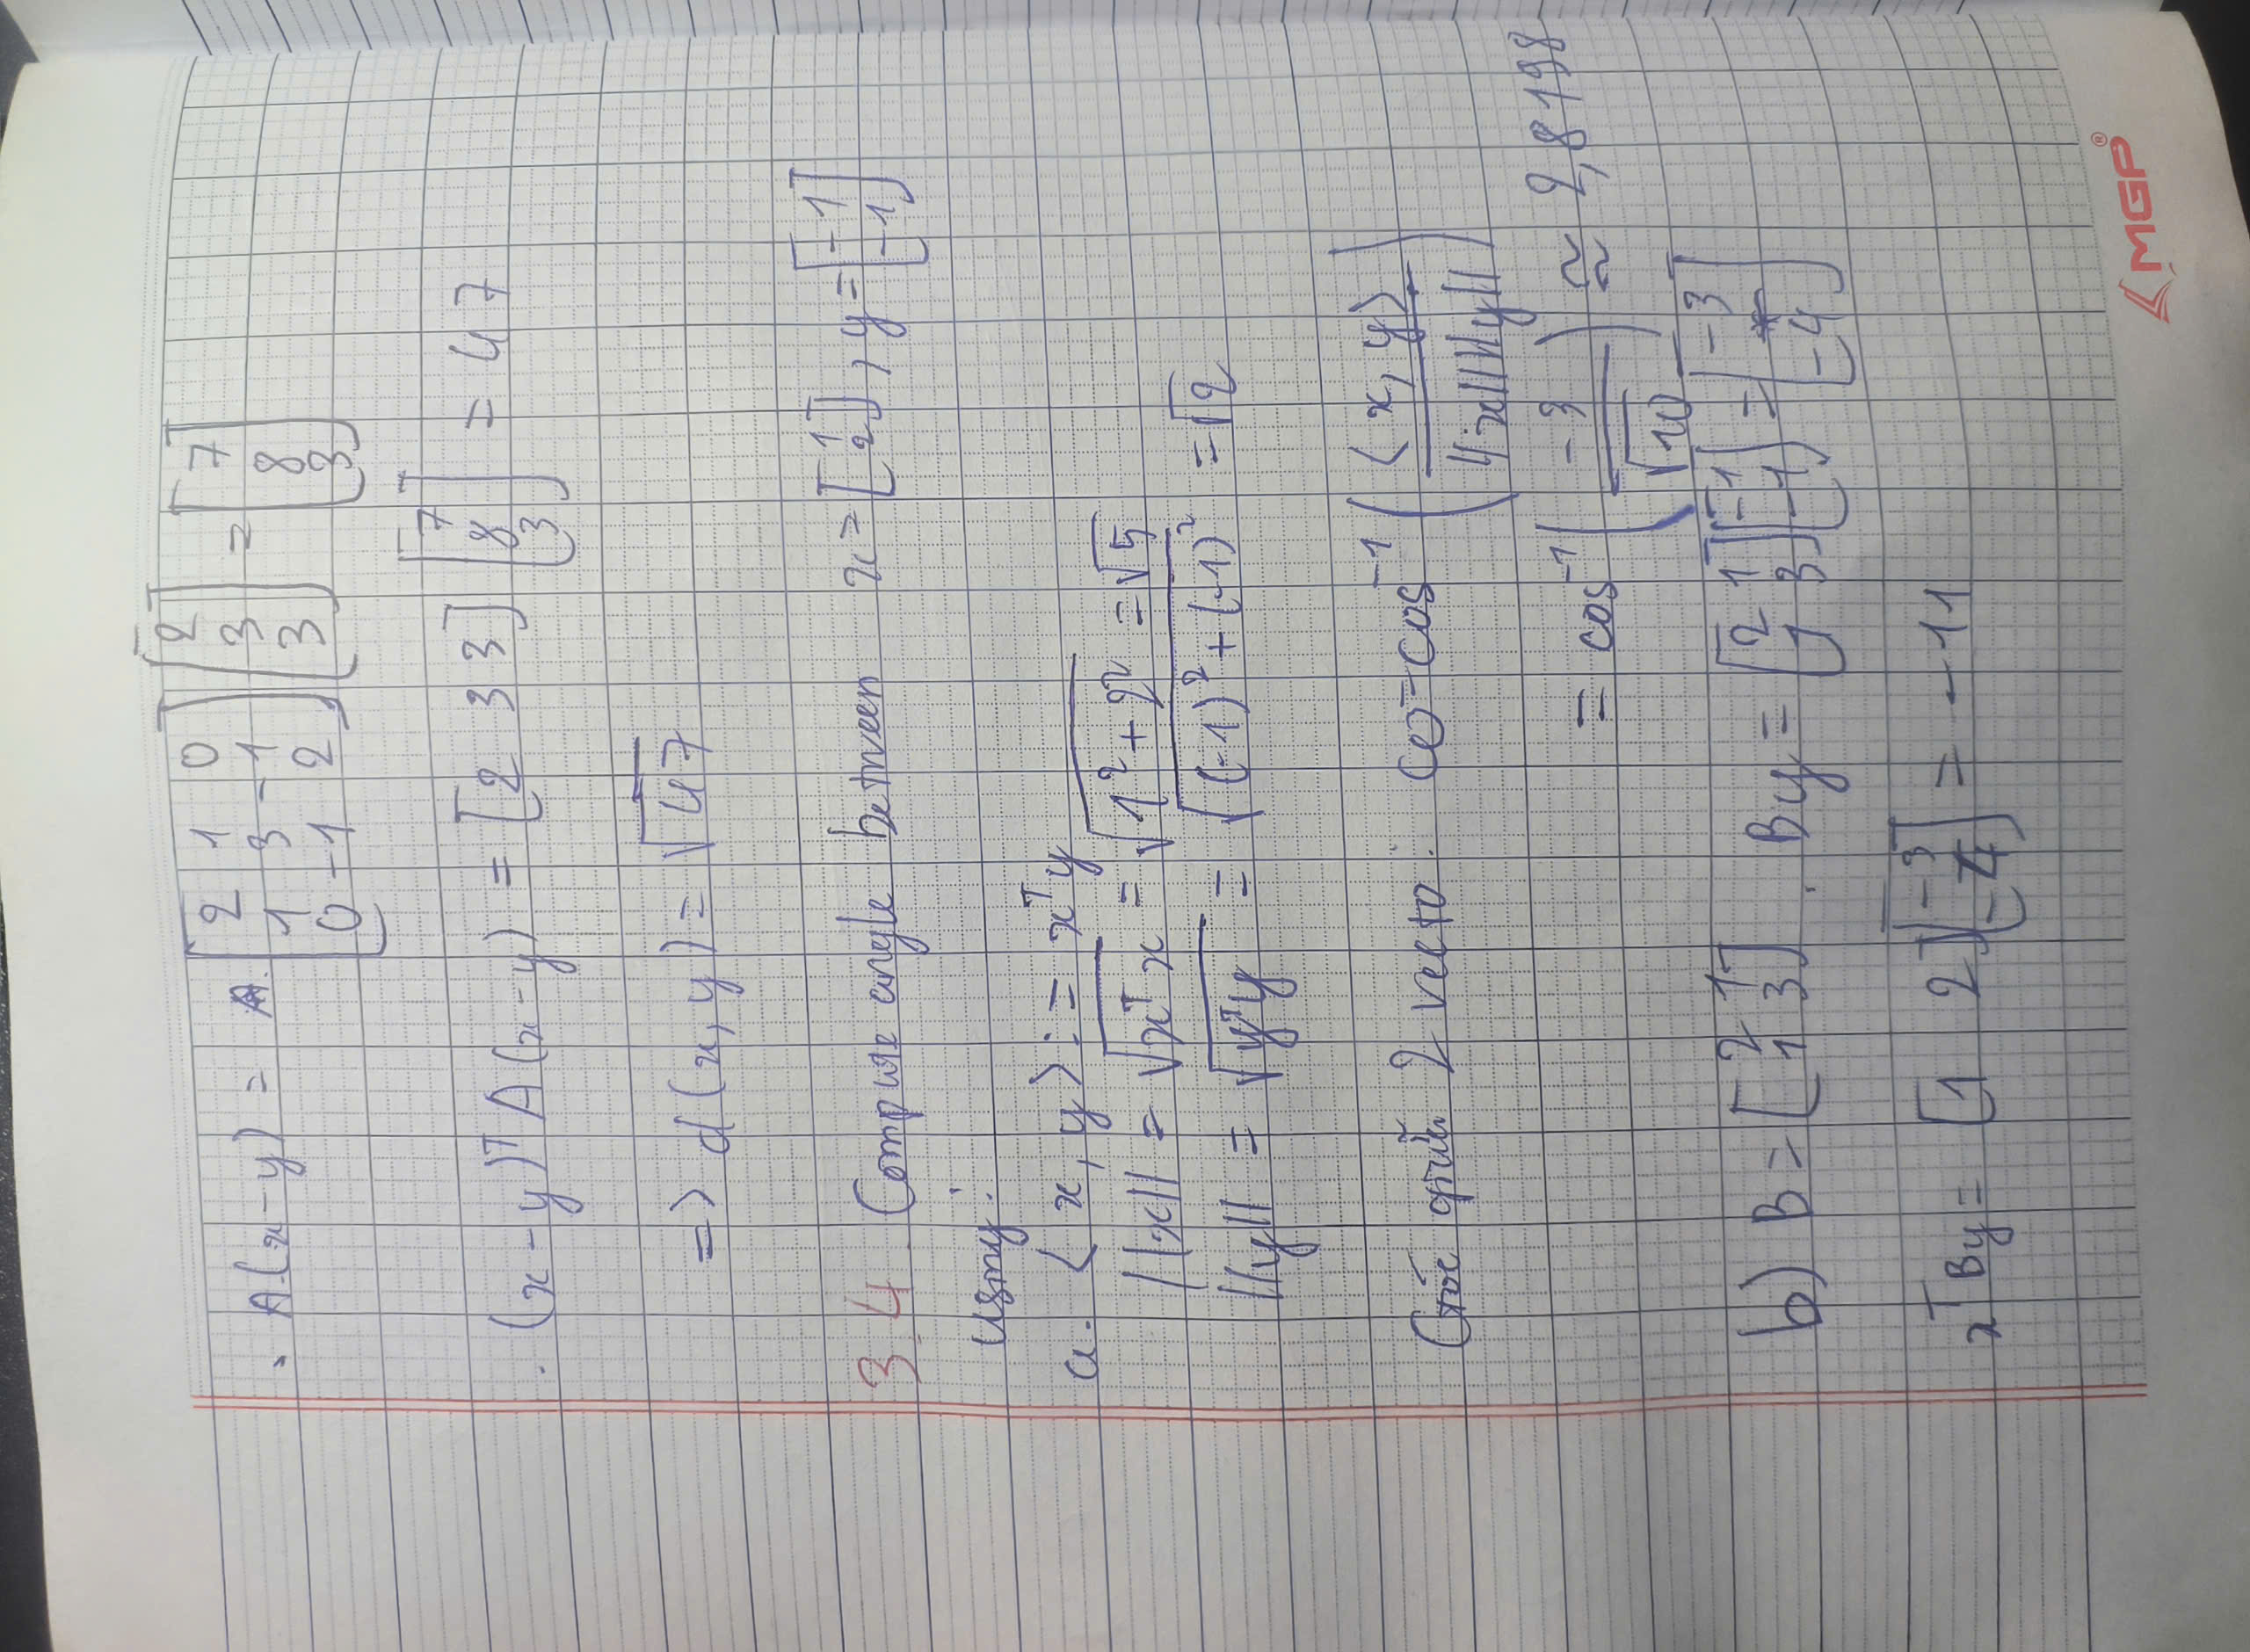 . A(x-y) = A. [2 1 0; 1 3 -1; 0 -1 2] [2; 3; 3] = [7; 8; 3]
. (x-y)ᵀA(x-y) = [2 3 3] [7; 8; 3] = 47
=> d(x,y) = √47
3.4. Compuse angle between x = [1; 2], y = [-1; -1]
using:
a. <x,y> := xᵀy
||x|| = √(xᵀx) = √(1² + 2²) = √5
||y|| = √(yᵀy) = √((-1)² + (-1)²) = √2
Góc giữa 2 vecto: ω = cos⁻¹(<x,y> / ||x|| ||y||)
= cos⁻¹(-3 / √10) ≈ 2,8198
b) B = [2 1; 1 3]. By = [2 1; 1 3] [-1; -1] = [-3; -4]
xᵀBy = [1 2] [-3; -4] = -11
MGP®